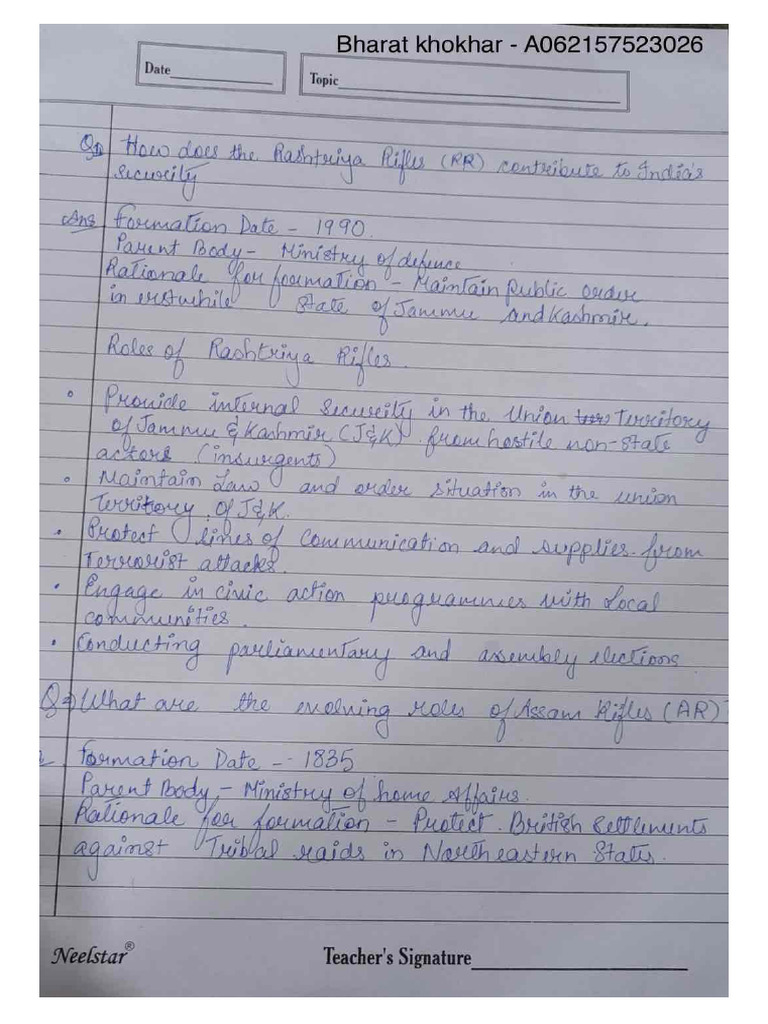 Bharat khokhar - A062157523026
Date
Topic
Q1) How does the Rashtriya Rifles (RR) contribute to India's
Security
Ans formation Date - 1990.
Parent Body - Ministry of defence
Rationale for formation - Maintain Public order
in erstwhile State of Jammu and Kashmir.
Roles of Rashtriya Rifles.
• Provide internal Security in the Union Territory
of Jammu & Kashmir (J&K) from hostile non-state
actors (insurgents)
• Maintain Law and order situation in the union
Territory of J&K.
• Protect lines of communication and supplies from
Terrorist attacks.
• Engage in civic action programmes with Local
communities.
• Conducting parliamentary and assembly elections
Q2 What are the evolving roles of Assam Rifles (AR)?
formation Date - 1835
Parent Body - Ministry of home Affairs.
Rationale for formation - Protect British Settlements
against Tribal raids in Northeastern States.
Neelstar®
Teacher's Signature